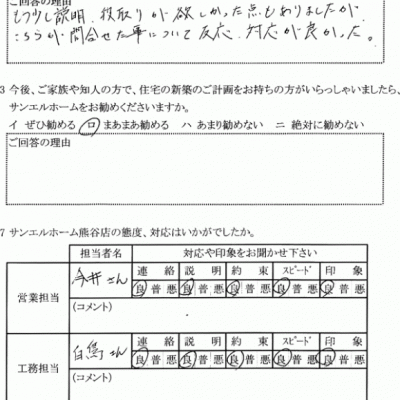 ご回答の理由
もう少し説明、段取りが欲しかった点もありましたが、
こちらが問合せた事について反応、対応が良かった。
3 今後、ご家族や知人の方で、住宅の新築のご計画をお持ちの方がいらっしゃいましたら、
サンエルホームをお勧めくださいますか。
イ ぜひ勧める ロ まあまあ勧める ハ あまり勧めない ニ 絶対に勧めない
ご回答の理由
7 サンエルホーム熊谷店の態度、対応はいかがでしたか。
担当者名 対応や印象をお聞かせ下さい
営業担当 今井さん 連絡 説明 約束 スピード 印象
良 普 悪 良 普 悪 良 普 悪 良 普 悪 良 普 悪
(コメント)
工務担当 白鳥さん 連絡 説明 約束 スピード 印象
良 普 悪 良 普 悪 良 普 悪 良 普 悪 良 普 悪
(コメント)